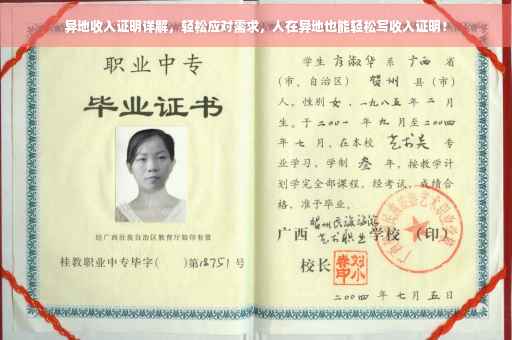 异地收入证明详解，轻松应对需求，人在异地也能轻松写收入证明！
职业中专
毕业证书
经广西壮族自治区教育厅验印有效
桂教职业中专毕字（ ）第18751号
学生 方淑华 系 广西 省
（市、自治区） 贺州 县（市）
人，性别 女，一九八五年 二 月
生。于 二〇〇一 年 九 月至 二〇〇四
年 七 月，在本校 艺术类 专
业学习，学制 叁 年，按教学计
划学完全部课程，经考试，成绩合
格，准予毕业。
广西 贺州民族旅游艺术职业 学校 （印）
校长
二〇〇四 年 七 月 五 日